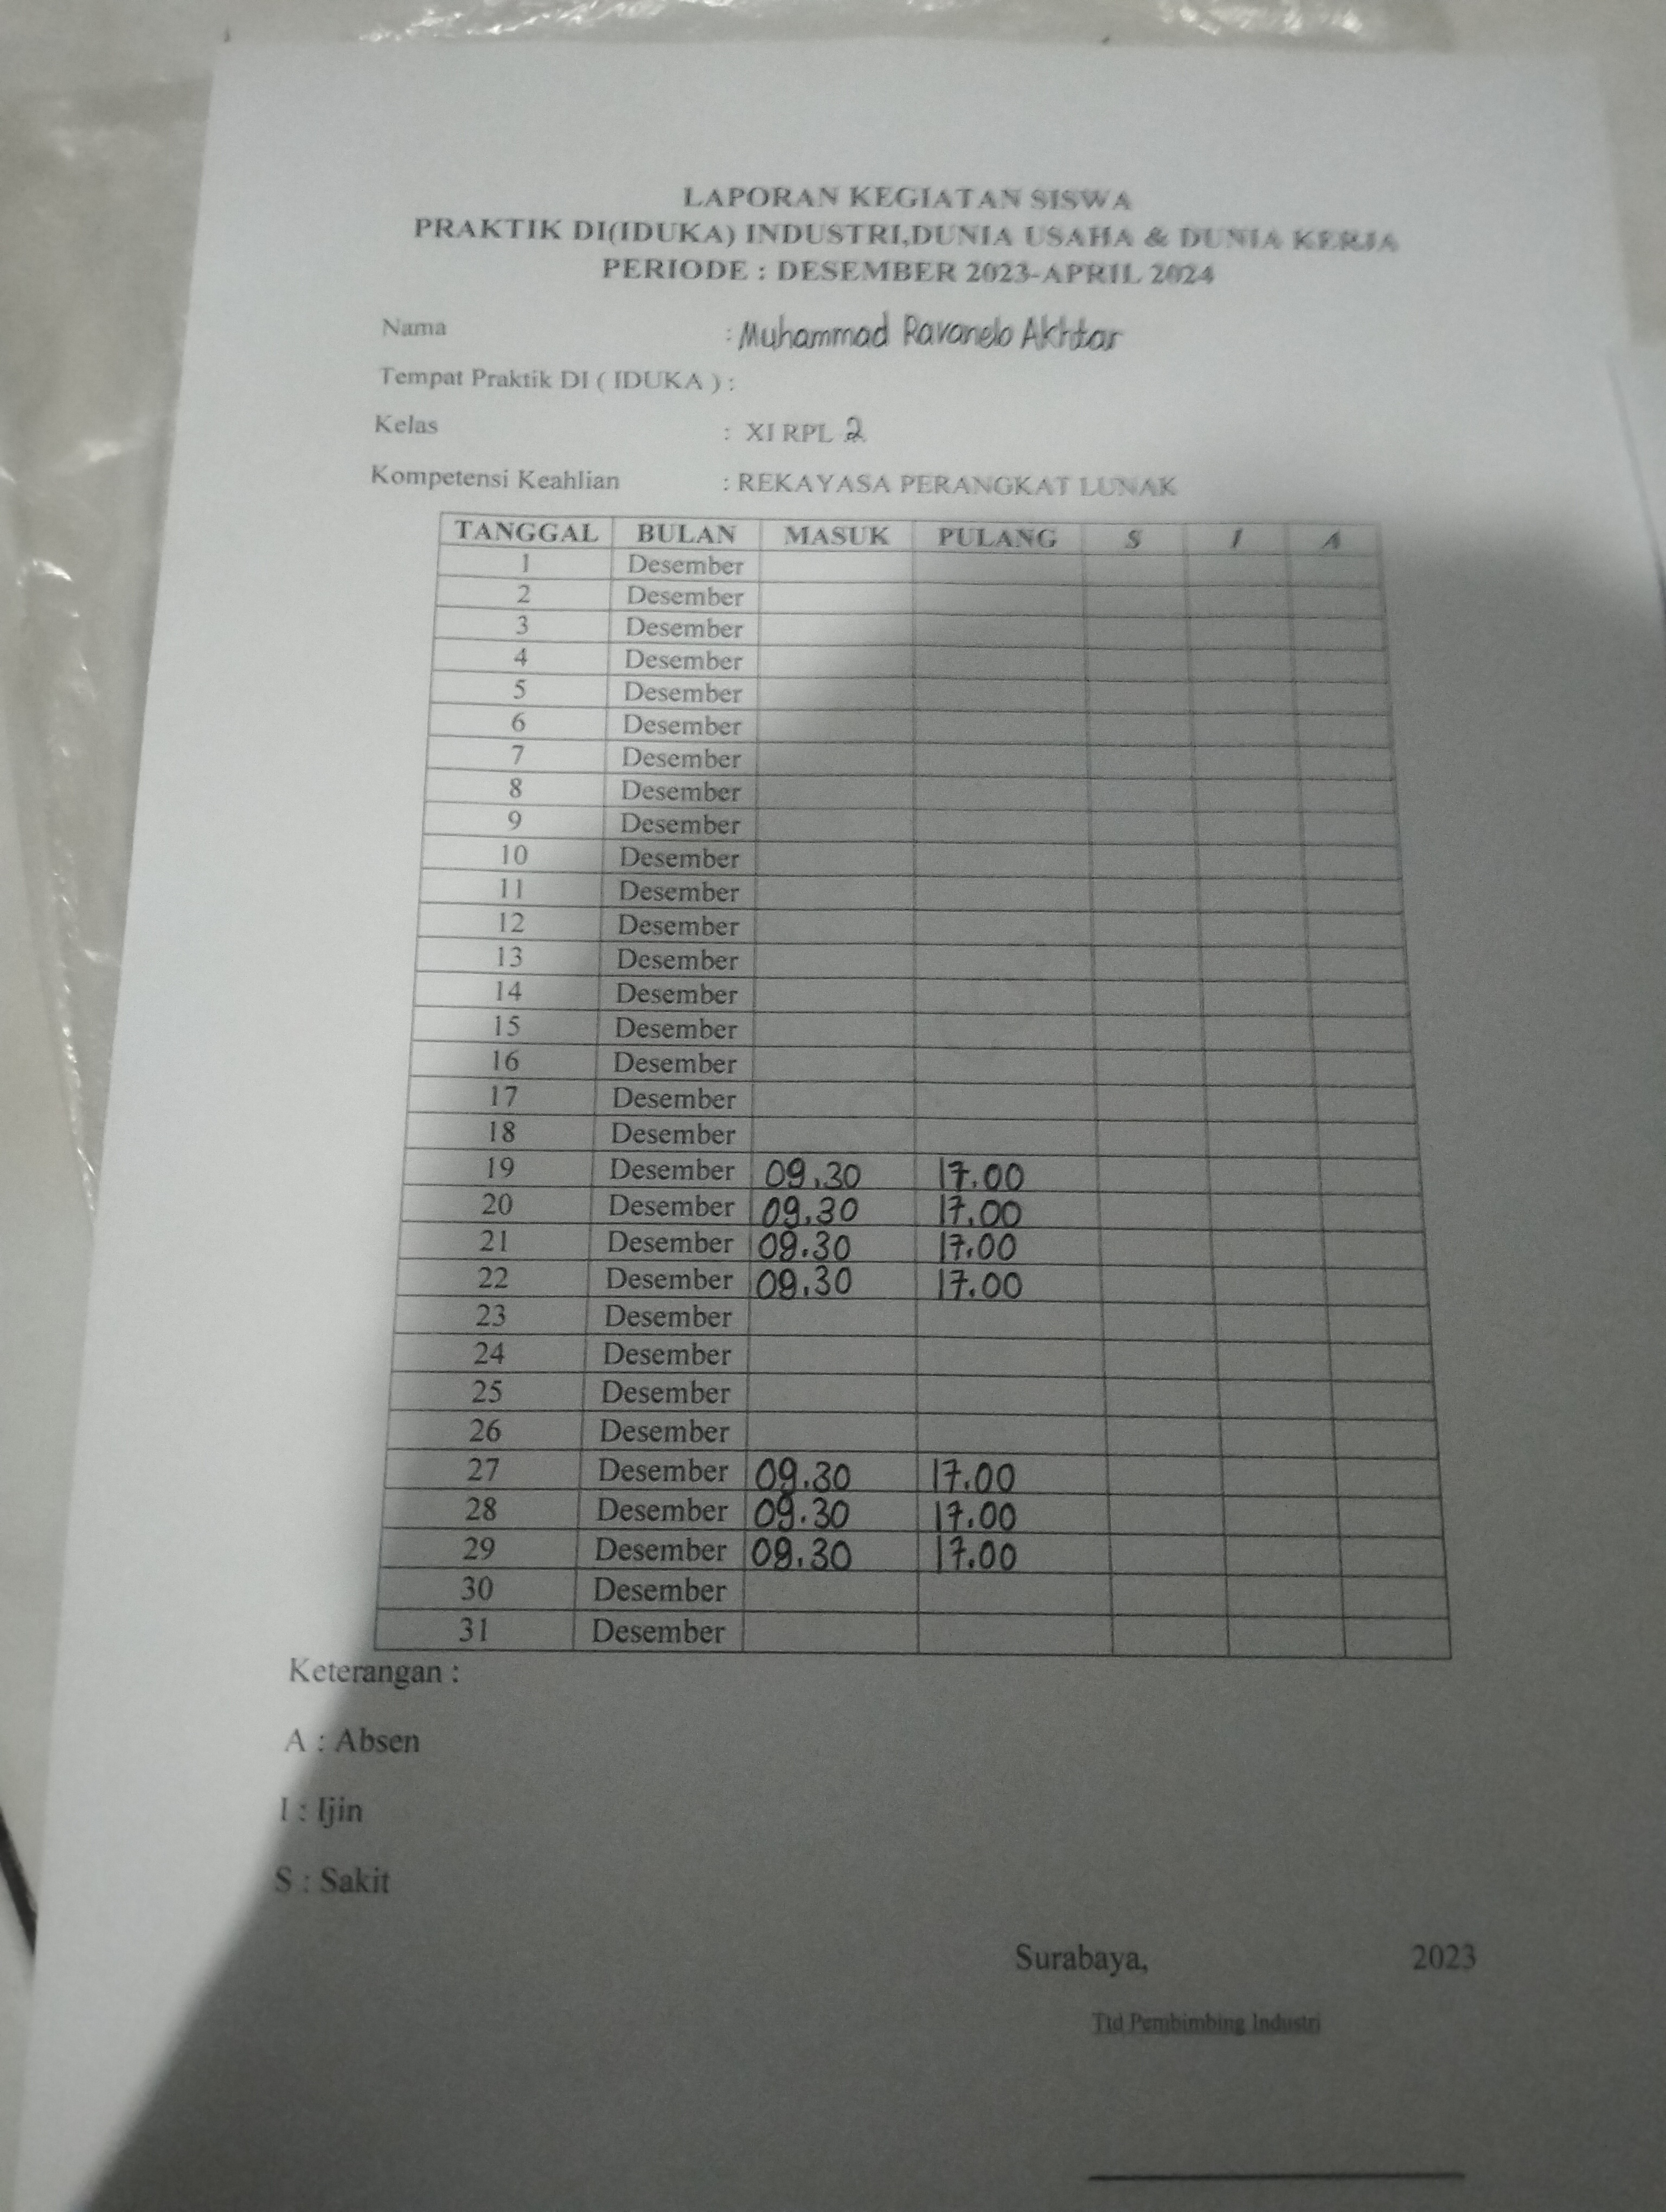 LAPORAN KEGIATAN SISWA
PRAKTIK DI(IDUKA) INDUSTRI,DUNIA USAHA & DUNIA KERJA
PERIODE : DESEMBER 2023-APRIL 2024
Nama : Muhammad Ravanelo Akhtar
Tempat Praktik DI ( IDUKA ) :
Kelas : XI RPL 2
Kompetensi Keahlian : REKAYASA PERANGKAT LUNAK
TANGGAL BULAN MASUK PULANG S I A
1 Desember
2 Desember
3 Desember
4 Desember
5 Desember
6 Desember
7 Desember
8 Desember
9 Desember
10 Desember
11 Desember
12 Desember
13 Desember
14 Desember
15 Desember
16 Desember
17 Desember
18 Desember
19 Desember 09.30 17.00
20 Desember 09.30 17.00
21 Desember 09.30 17.00
22 Desember 09.30 17.00
23 Desember
24 Desember
25 Desember
26 Desember
27 Desember 09.30 17.00
28 Desember 09.30 17.00
29 Desember 09.30 17.00
30 Desember
31 Desember
Keterangan :
A : Absen
I : Ijin
S : Sakit
Surabaya, 2023
Ttd Pembimbing Industri